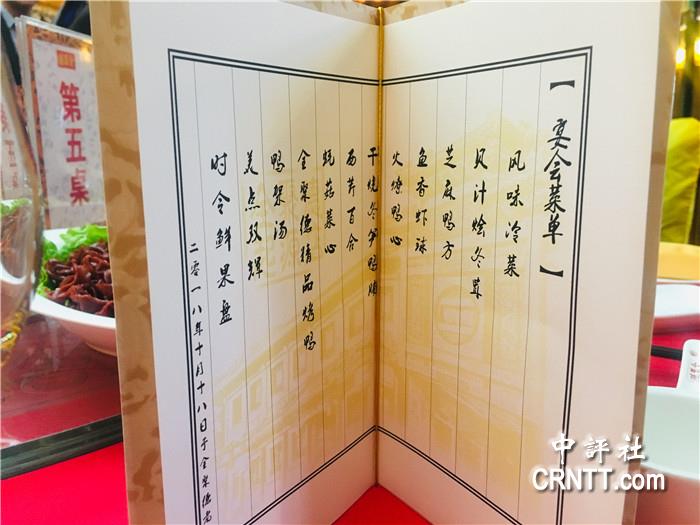 【宴会菜单】
风味冷菜
贝汁烩冬茸
芝麻鸭方
鱼香虾球
火燎鸭心
干烧冬笋鸭脯
西芹百合
蚝菇菜心
全聚德精品烤鸭
鸭架汤
美点双辉
时令鲜果盘
二零一八年十月十八日于全聚德老
第五桌
中評社
CRNTT.com